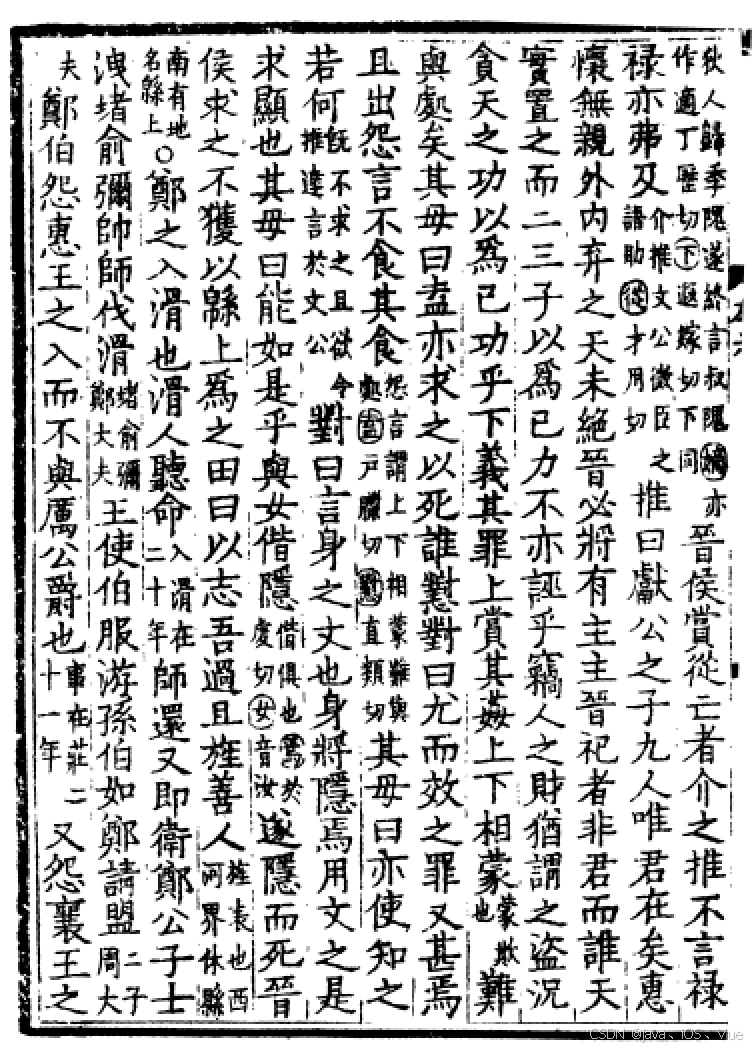 狄人歸季隗遂終言叔隗嫡亦作適丁歷切下遐嫁切下同晉侯賞從亡者介之推不言禄
禄亦弗及介推文公微臣之語助從才用切推曰獻公之子九人唯君在矣惠
懷無親外内弃之天未絶晉必將有主主晉祀者非君而誰天
實置之而二三子以爲己力不亦誣乎竊人之財猶謂之盜況
貪天之功以爲己功乎下義其罪上賞其姦上下相蒙蒙欺也難
與處矣其母曰盍亦求之以死誰懟對曰尤而效之罪又甚焉
且出怨言不食其食怨言謂上下相蒙難與處盍戸臘切懟直類切其母曰亦使知之
若何旣不求之且欲今推達言於文公對曰言身之文也身將隱焉用文之是
求顯也其母曰能如是乎與女偕隱偕俱也焉於虔切女音汝遂隱而死晉
侯求之不獲以緜上爲之田曰以志吾過且旌善人旌表也西河界休縣
南有地名緜上○鄭之入滑也滑人聽命入滑在二十年師還又即衛鄭公子士
洩堵俞彌帥師伐滑堵俞彌鄭大夫王使伯服游孫伯如鄭請盟二子周大
夫鄭伯怨惠王之入而不與厲公爵也事在莊二十一年又怨襄王之
CSDN @java、iOS、Vue